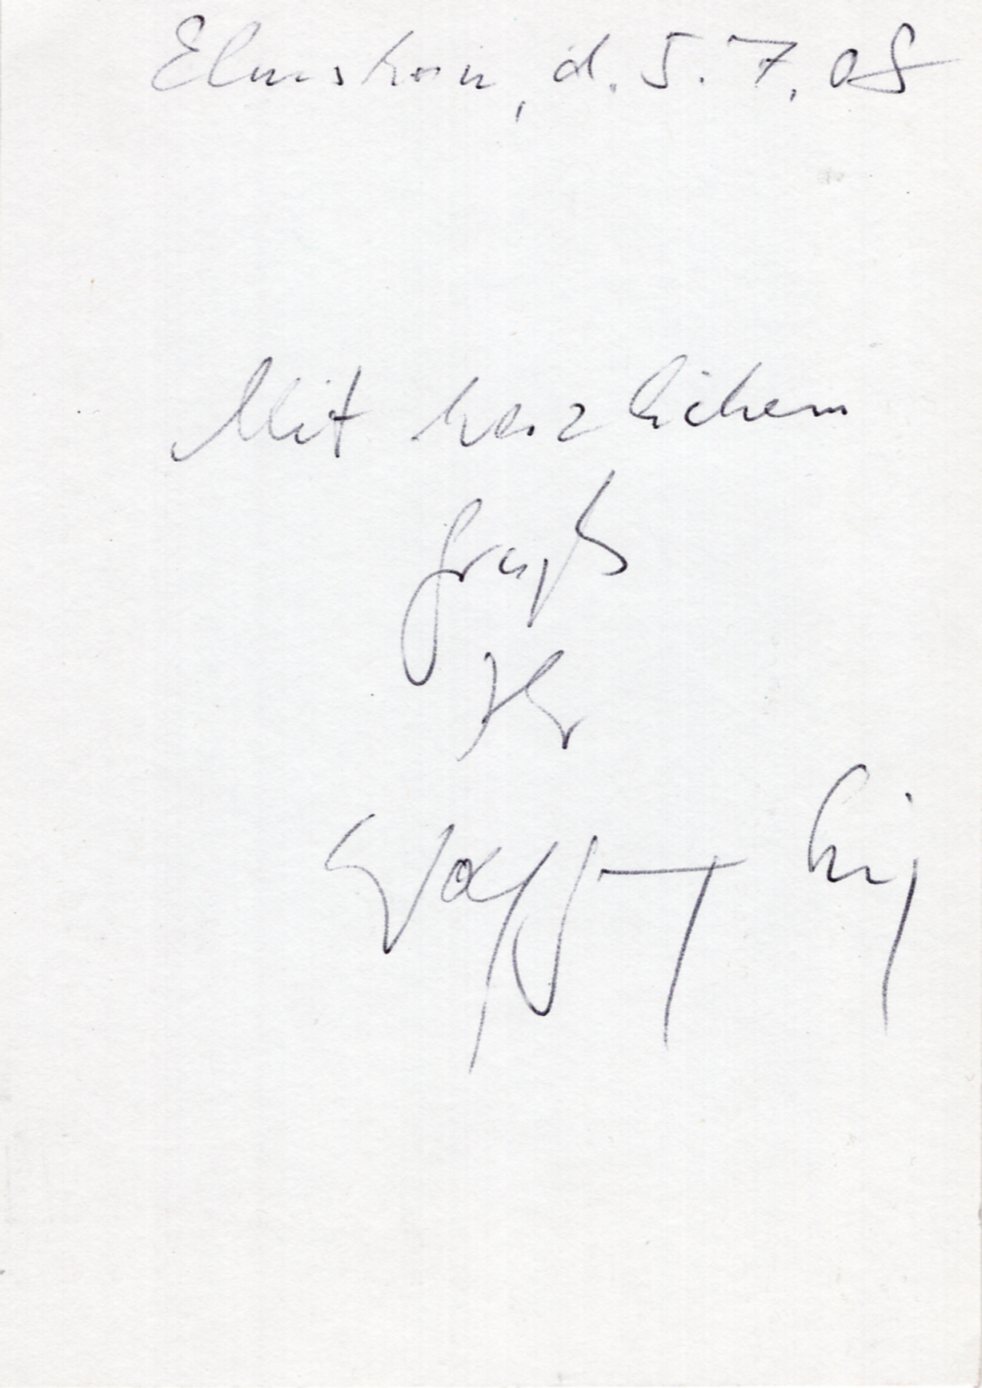 Elmstein, d. 5.7.08
Mit herzlichem
Gruß
Ihr
Wolfgang